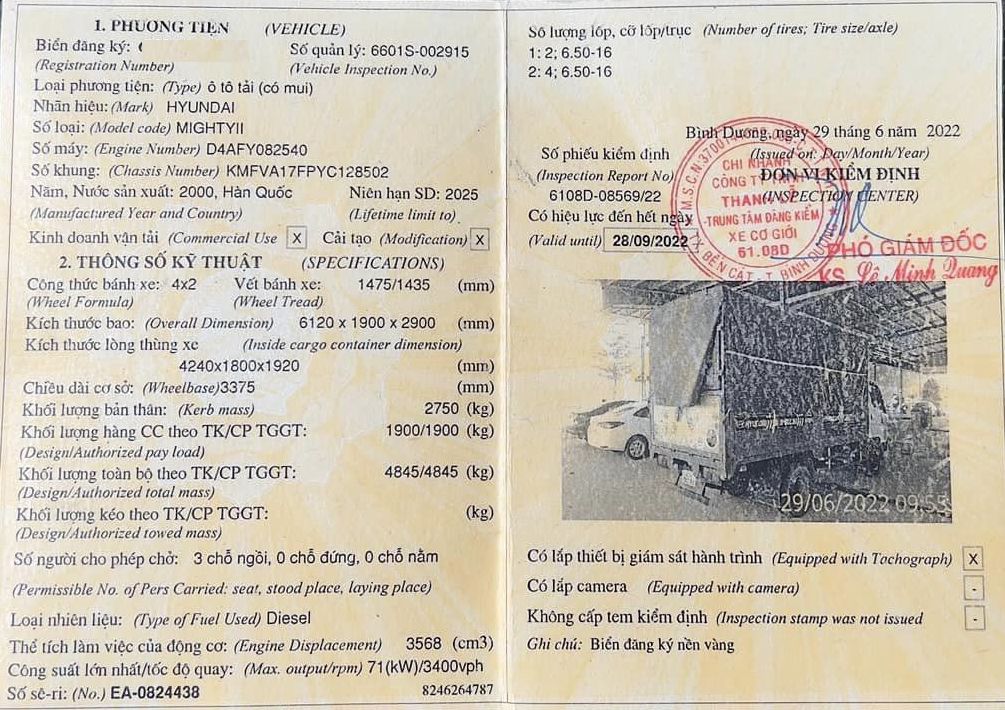 1. PHƯƠNG TIỆN (VEHICLE)
Biển đăng ký:
(Registration Number)
Số quản lý: 6601S-002915
(Vehicle Inspection No.)
Loại phương tiện: (Type) ô tô tải (có mui)
Nhãn hiệu: (Mark) HYUNDAI
Số loại: (Model code) MIGHTYII
Số máy: (Engine Number) D4AFY082540
Số khung: (Chassis Number) KMFVA17FPYC128502
Năm, Nước sản xuất: 2000, Hàn Quốc Niên hạn SD: 2025
(Manufactured Year and Country) (Lifetime limit to)
Kinh doanh vận tải (Commercial Use X Cải tạo (Modification) X
2. THÔNG SỐ KỸ THUẬT (SPECIFICATIONS)
Công thức bánh xe: 4x2 Vết bánh xe: 1475/1435 (mm)
(Wheel Formula) (Wheel Tread)
Kích thước bao: (Overall Dimension) 6120 x 1900 x 2900 (mm)
Kích thước lòng thùng xe (Inside cargo container dimension)
4240x1800x1920 (mm)
Chiều dài cơ sở: (Wheelbase)3375 (mm)
Khối lượng bản thân: (Kerb mass) 2750 (kg)
Khối lượng hàng CC theo TK/CP TGGT: 1900/1900 (kg)
(Design/Authorized pay load)
Khối lượng toàn bộ theo TK/CP TGGT: 4845/4845 (kg)
(Design/Authorized total mass)
Khối lượng kéo theo TK/CP TGGT: (kg)
(Design/Authorized towed mass)
Số người cho phép chở: 3 chỗ ngồi, 0 chỗ đứng, 0 chỗ nằm
(Permissible No. of Pers Carried: seat, stood place, laying place)
Loại nhiên liệu: (Type of Fuel Used) Diesel
Thể tích làm việc của động cơ: (Engine Displacement) 3568 (cm3)
Công suất lớn nhất/tốc độ quay: (Max. output/rpm) 71(kW)/3400vph
Số sê-ri: (No.) EA-0824438 8246264787
Số lượng lốp, cỡ lốp/trục (Number of tires; Tire size/axle)
1: 2; 6.50-16
2: 4; 6.50-16
Bình Dương, ngày 29 tháng 6 năm 2022
(Issued on: Day/Month/Year)
Số phiếu kiểm định
(Inspection Report No)
6108D-08569/22
ĐƠN VỊ KIỂM ĐỊNH
(INSPECTION CENTER)
Có hiệu lực đến hết ngày
(Valid until) 28/09/2022
CHI NHÁNH
CÔNG TY TNHH
TRUNG TÂM ĐĂNG KIỂM
XE CƠ GIỚI
61.08D
X. BẾN CÁT - T. BÌNH DƯƠNG
PHÓ GIÁM ĐỐC
KS. Lê Minh Quang
29/06/2022 09:55
Có lắp thiết bị giám sát hành trình (Equipped with Tachograph) X
Có lắp camera (Equipped with camera) -
Không cấp tem kiểm định (Inspection stamp was not issued -
Ghi chú: Biển đăng ký nền vàng